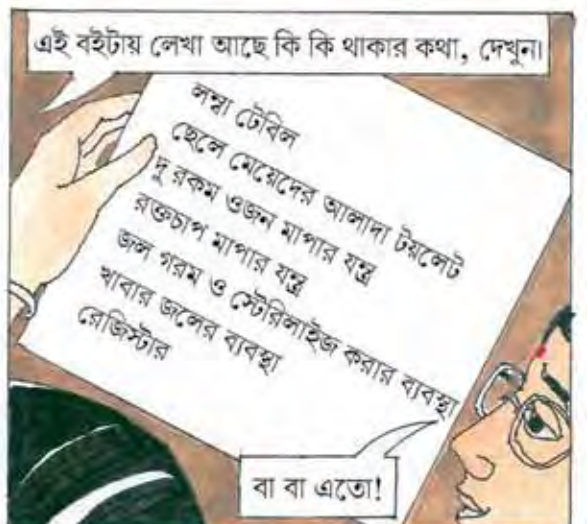 এই বইটায় লেখা আছে কি কি থাকার কথা, দেখুন।
লম্বা টেবিল
ছেলে মেয়েদের আলাদা টয়লেট
দু রকম ওজন মাপার যন্ত্র
রক্তচাপ মাপার যন্ত্র
জল গরম ও স্টেরিলাইজ করার ব্যবস্থা
খাবার জলের ব্যবস্থা
রেজিস্টার
বা বা এতো!